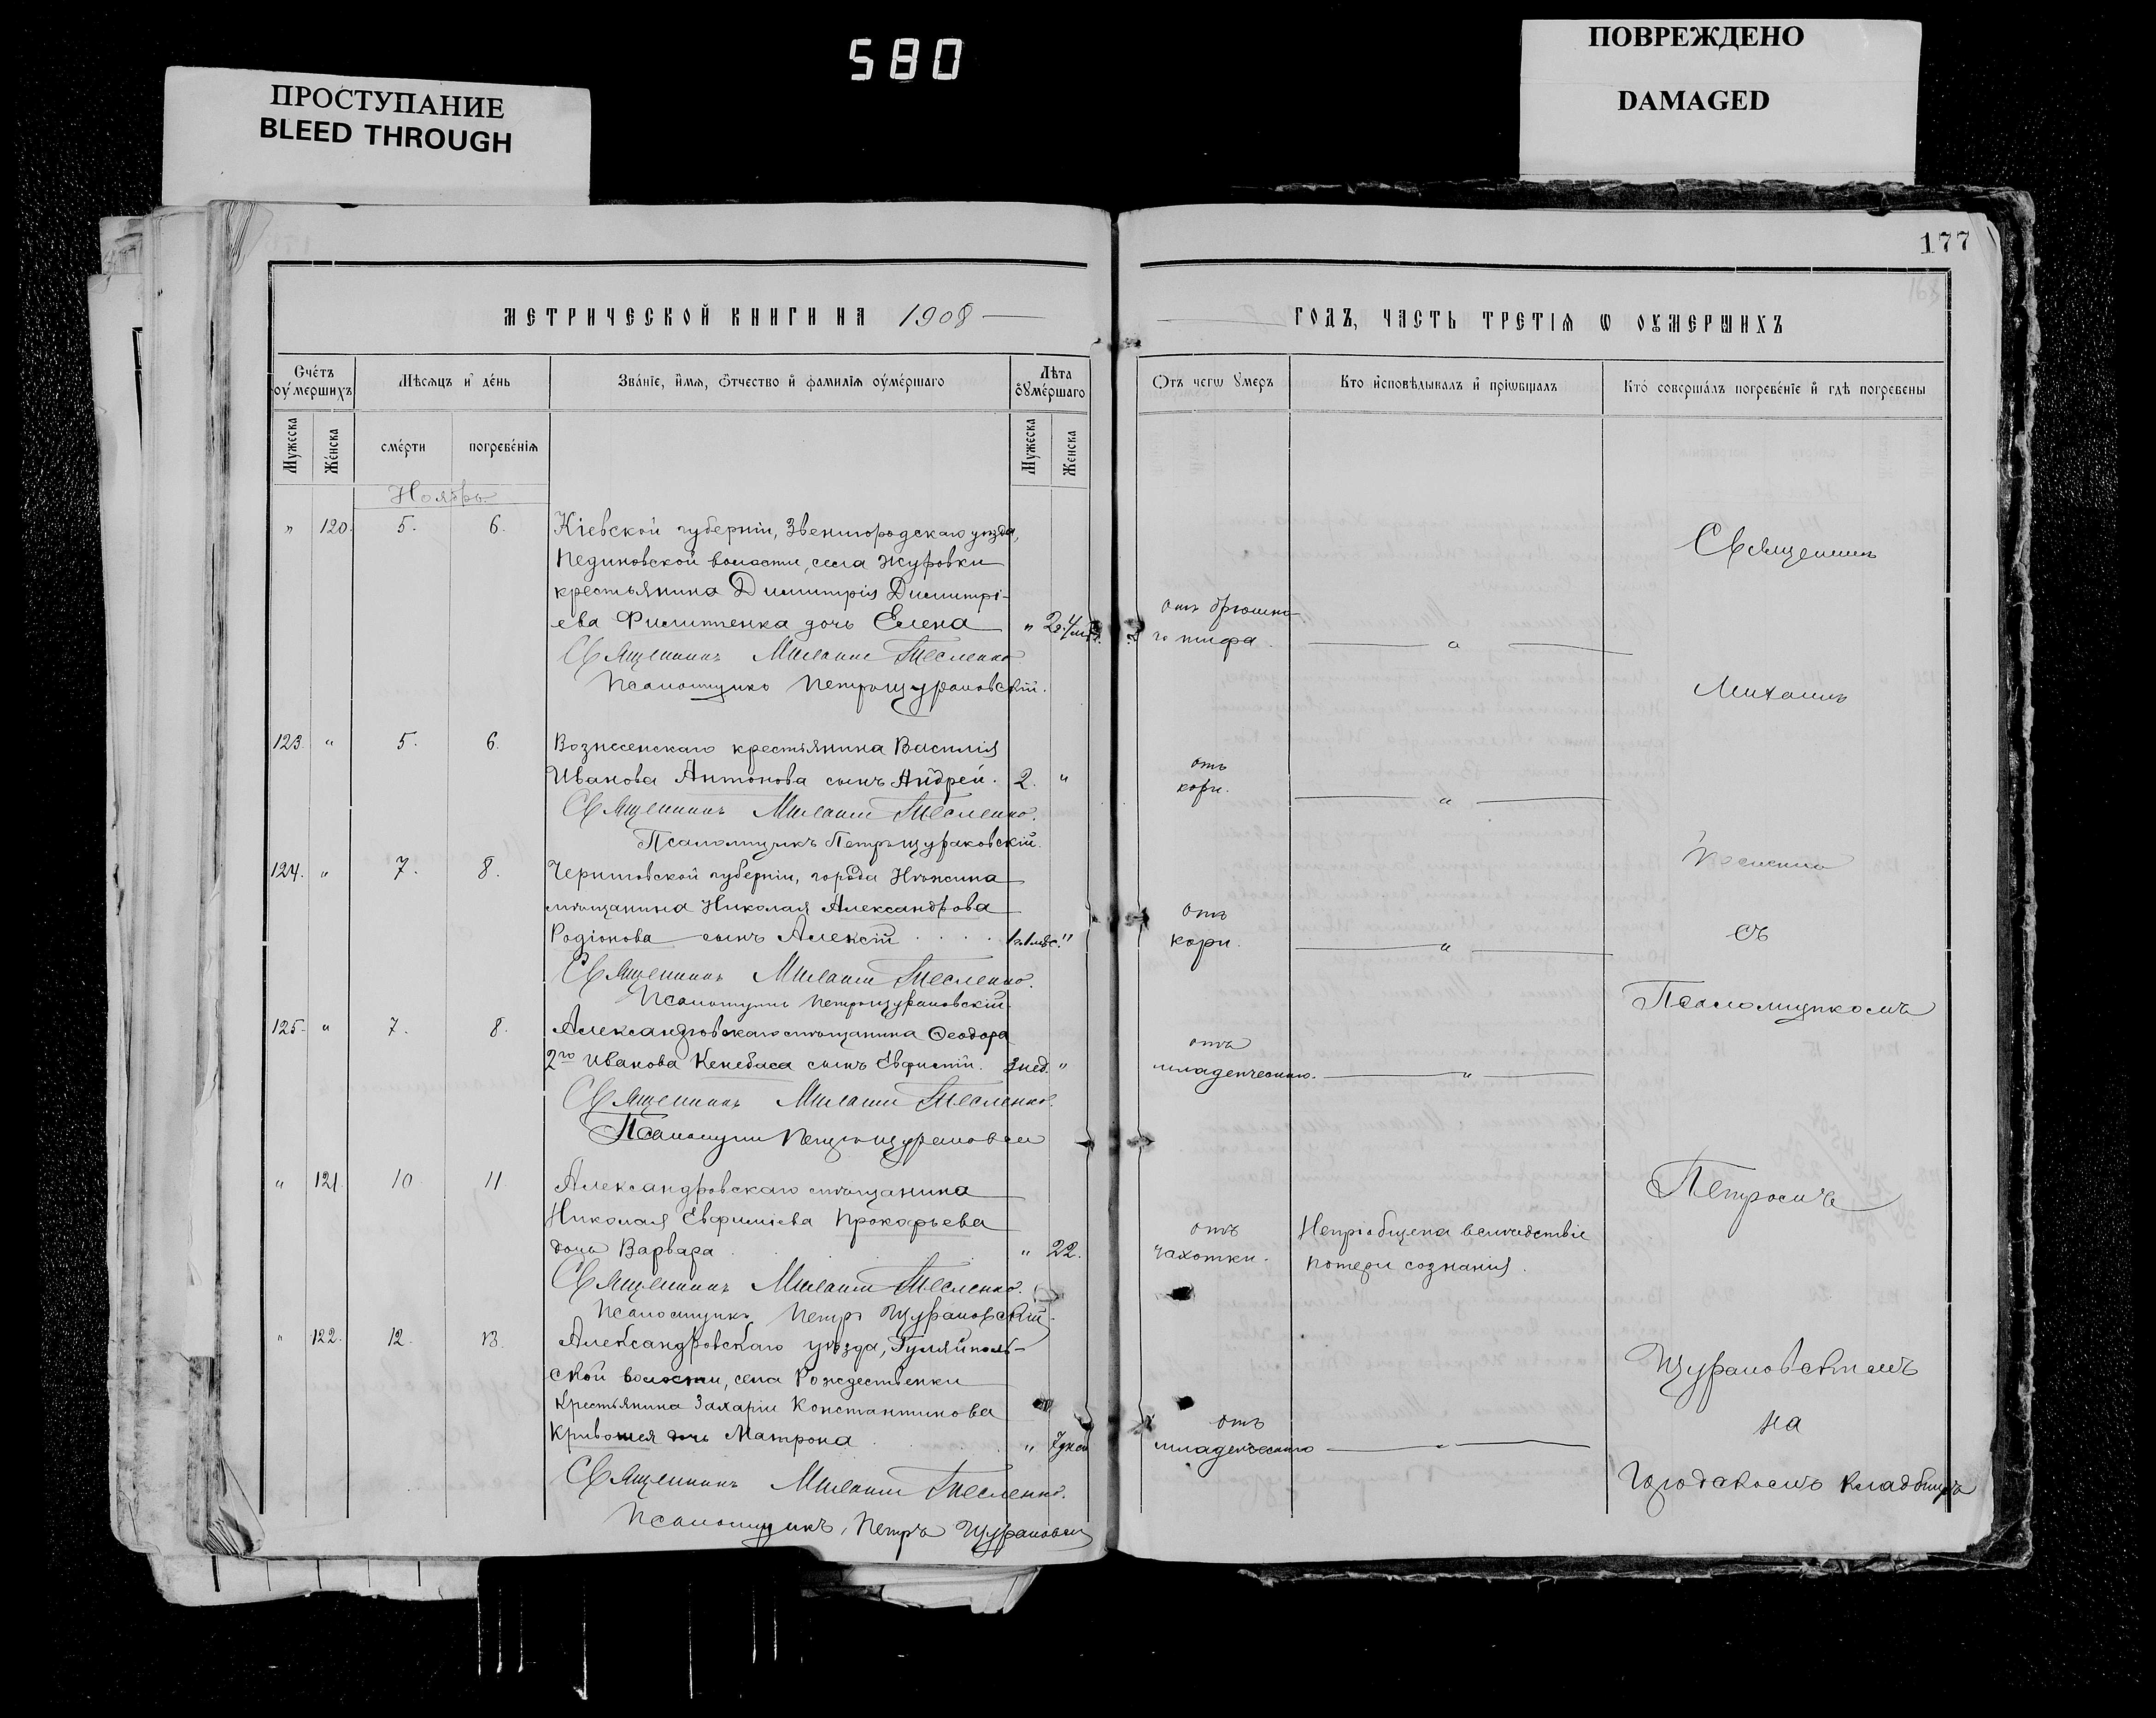 580
ПРОСТУПАНИЕ
BLEED THROUGH
ПОВРЕЖДЕНО
DAMAGED
177
МЕТРИЧЕСКОЙ КНИГИ НА 1908
ГОДЪ, ЧАСТЬ ТРЕТІѦ Ѡ ОУМЕРШИХЪ
Счетъ оумершихъ
Мѣсѧцъ и день
Званіе, имѧ, ѿчество и фамиліѧ оумершаго
Лѣта оумершаго
Отъ чегѡ умеръ
Кто исповѣдывалъ и пріѡбщалъ
Кто совершалъ погребеніе и гдѣ погребены
Мужеска
Женска
смерти
погребеніѧ
Мужеска
Женска
Ноябрь
" 120. 5. 6. Кіевской губерніи, Звенигородскаго уѣзда,
Пединовской волости, села Журовки
крестьянина Димитрія Димитрі-
ева Филипенка дочь Елена " 2 г. 4 мѣс. отъ брюшно-
го тифа. "
Священникъ Михаилъ Тесленко
Псаломщикъ Петръ Щурановскій.
123. " 5. 6. Вознесенскаго крестьянина Василія
Иванова Антонова сынъ Андрей. 2. " отъ
кори. "
Священникъ Михаилъ Тесленко.
Псаломщикъ Петръ Щурановскій.
124. " 7. 8. Черниговской губерніи, города Нѣжина
мѣщанина Николая Александрова
Родіонова сынъ Алексій 1 г. 1 мѣс. " отъ
кори. "
Священникъ Михаилъ Тесленко.
Псаломщикъ Петръ Щурановскій.
125. " 7. 8. Александровскаго мѣщанина Ѳеодора
2го Иванова Кенебаса сынъ Евфимій. 3 нед. " отъ
младенческаго. "
Священникъ Михаилъ Тесленко.
Псаломщикъ Петръ Щурановскій
" 121. 10 11 Александровскаго мѣщанина
Николая Евфиміева Прокофьева
дочь Варвара " 22. отъ
чахотки. Непріобщена вслѣдствіе
потери сознанія.
Священникъ Михаилъ Тесленко.
Псаломщикъ Петръ Щурановскій.
" 122. 12. 13. Александровскаго уѣзда, Гуляйполь-
ской волости, села Рождественки
крестьянина Захаріи Константинова
Кривошея дочь Матрона " 7 дней отъ
младенческаго "
Священникъ Михаилъ Тесленко.
Псаломщикъ, Петръ Щурановскій
Священникъ
Михаилъ
Тесленко
съ
Псаломщикомъ
Петромъ
Щурановскимъ
на
Городскомъ кладбищѣ